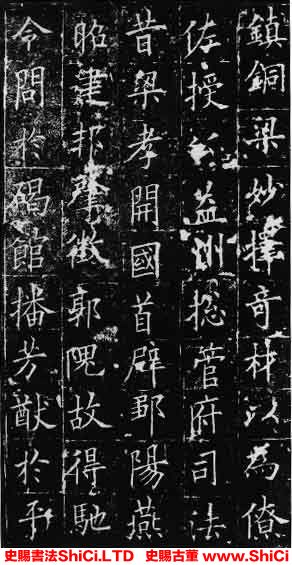 鎮銅梁妙擇奇材以為僚
佐授 益州揔管府司法
昔梁孝開國首辟鄒陽燕
昭建邦肇徵郭隗故得馳
令問於碣館播芳猷於平
史賜書法ShiCi.LTD 史賜古董 www.ShiCi